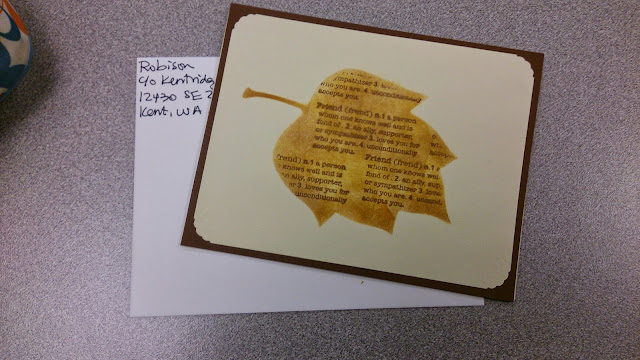 Robison
c/o Kentridg
12430 SE 2
Kent, WA
sympathizer 3.
who you are. 4. unconditionally
accepts you.
Friend (frend) n.1 a person
whom one knows well and is
fond of. 2. an ally, supporter,
or sympathizer 3. loves you for
who you are. 4. unconditionally
accepts you.
rend) n.1 a person
knows well and is
an ally, supporter,
or 3. loves you for
unconditionally
Friend (frend) n.1
whom one knows wel
fond of. 2. an ally, sup
or sympathizer 3. love
who you are. 4. uncond
accepts you.